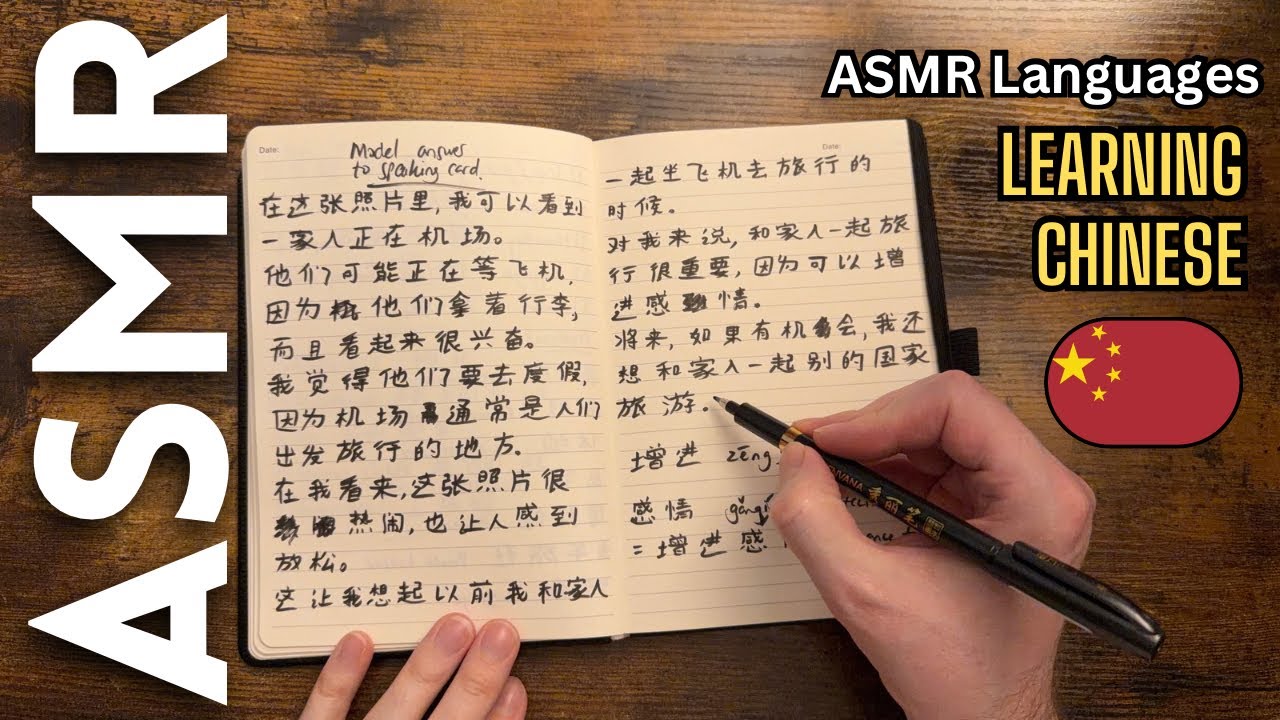 ASMR
ASMR Languages
LEARNING
CHINESE
Date:
Model answer
to speaking card.
在这张照片里,我可以看到
一家人正在机场。
他们可能正在等飞机,
因为他们拿着行李,
而且看起来很兴奋。
我觉得他们要去度假,
因为机场通常是人们
出发旅行的地方.
在我看来,这张照片很
热闹,也让人感到
放松。
这让我想起以前我和家人
Date:
一起坐飞机去旅行的
时候。
对我来说,和家人一起旅
行很重要,因为可以增
进感情。
将来,如果有机会,我还
想和家人一起别的国家
旅游.
增进 zēng
感情 gǎnqí
= 增进感
秀丽笔